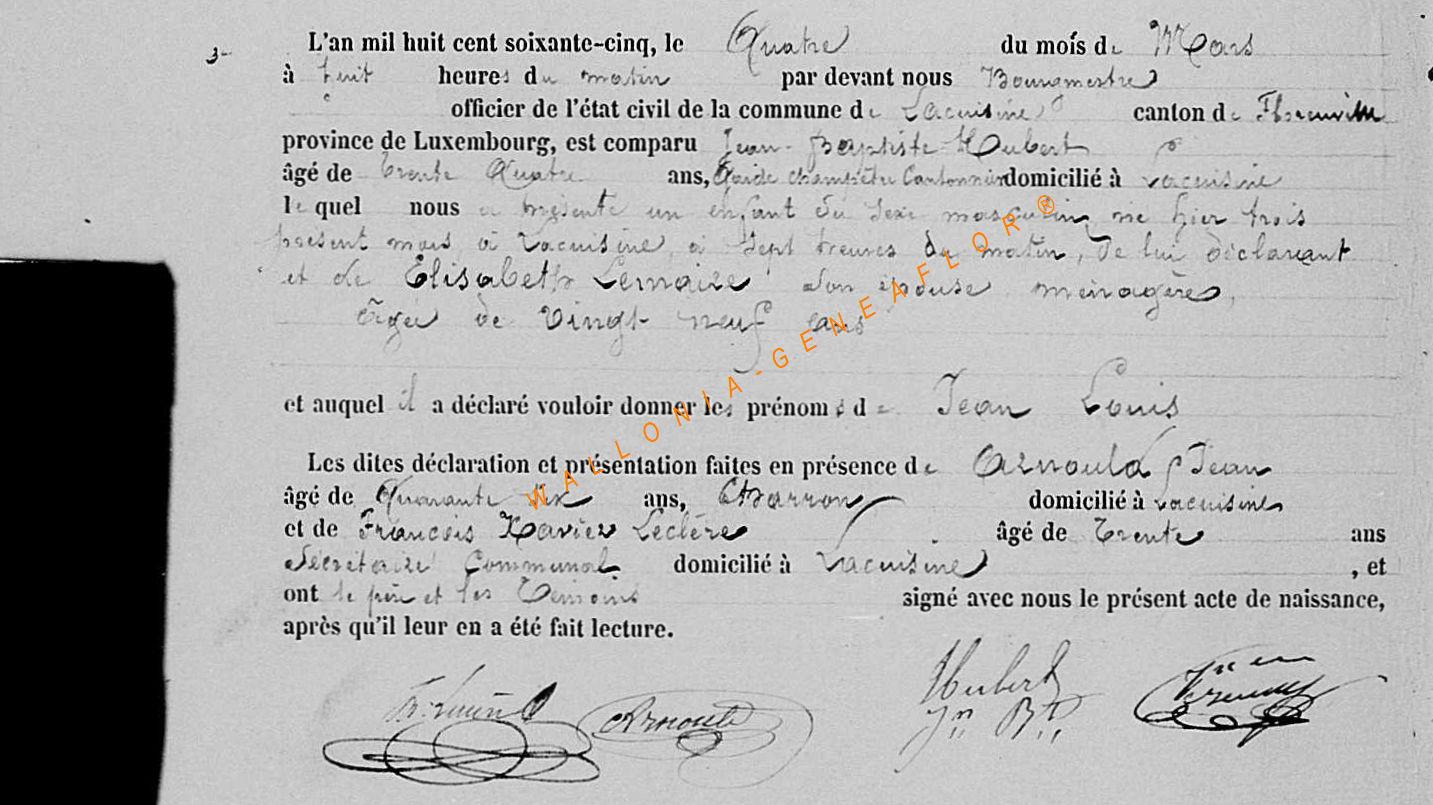 3-
L'an mil huit cent soixante-cinq, le Quatre du mois de Mars
à huit heures du matin par devant nous Bourgmestre
officier de l'état civil de la commune de Lacuisine canton de Florenville
province de Luxembourg, est comparu Jean-Baptiste Hubert
âgé de trente Quatre ans, Garde champêtre Cantonnier domicilié à Lacuisine
lequel nous a présenté un enfant du sexe masculin, né hier trois
présent mois à Lacuisine, à Sept heures du matin, de lui déclarant
et de Elisabeth Lemaire son épouse ménagère,
âgée de Vingt neuf ans
et auquel il a déclaré vouloir donner les prénoms de Jean Louis
Les dites déclaration et présentation faites en présence de Arnould Jean
âgé de Quarante six ans, Charron domicilié à Lacuisine
et de François Xavier Leclère âgé de Trente ans
Secrétaire Communal domicilié à Lacuisine, et
ont le père et les Témoins signé avec nous le présent acte de naissance,
après qu'il leur en a été fait lecture.
Arnould Hubert
Jn Bte
WALLONIA-GENEAFLOR ®